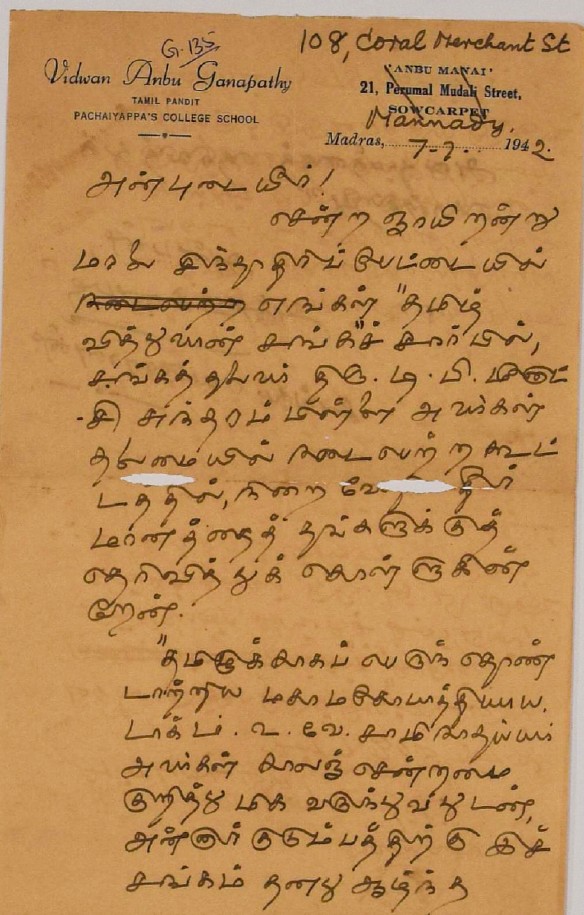 G.135
108, Coral Merchant St
Vidwan Anbu Ganapathy
TAMIL PANDIT
PACHAIYAPPA'S COLLEGE SCHOOL
'ANBU MANAI'
21, Perumal Mudali Street,
SOWCARPET
Mannady,
Madras, 7-7-- 1942.
அன்புடையீர்!
சென்ற ஞாயிறன்று
மாலை சிந்தாதிரிப் பேட்டையில்
நடைபெற்ற எங்கள் "தமிழ்
வித்துவான் சங்கச்" சார்பில்,
சங்கத் தலைவர் திரு. டி. பி. மீனாட்
சி சுந்தரம் பிள்ளை அவர்கள்
தலைமையில் நடைபெற்ற கூட்
டத்தில், நிறைவேறிய தீர்
மானத்தைத் தங்களுக்குத்
தெரிவித்துக் கொள்ளுகின்
றேன்.
"தமிழுக்காகப் பெருந் தொண்
டாற்றிய மகாமகோபாத்தியாய,
டாக்டர். உ. வே. சாமிநாதய்யர்
அவர்கள் காலஞ் சென்றமை
குறித்து மிக வருந்துவதுடன்,
அன்னார் குடும்பத்திற்கு இச்
சங்கம் தனது ஆழ்ந்த